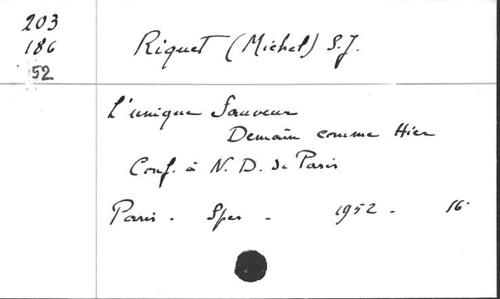 203
186
52
Riquet (Michel) S.J.
L'unique Sauveur
Demain comme Hier
Conf. à N. D. de Paris
Paris - Spes - 1952 - 16